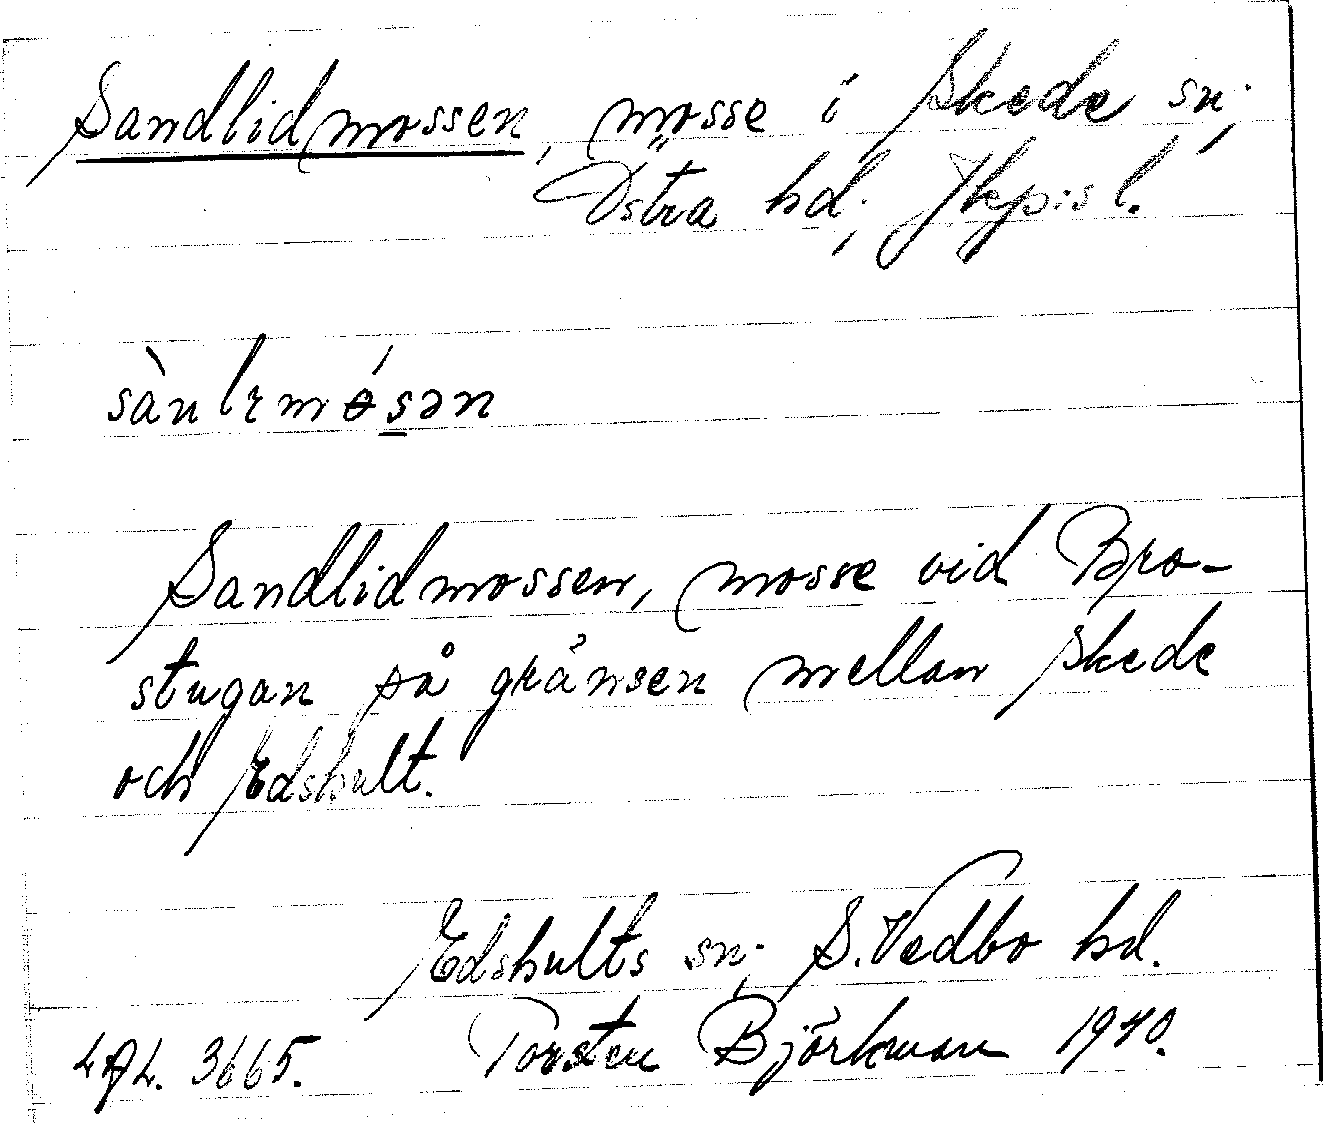 Sandlidmossen, mosse i Skede sn.,
Östra hd., Jkp:s l.
sànlɩmǿsən
Sandlidmossen, mosse vid Bro-
stugan på gränsen mellan Skede
och Edshult.
Edshults sn., S. Vedbo hd.
LAL. 3665. Torsten Björkman 1940.